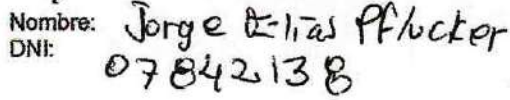 Nombre: Jorge Elias Pflucker
DNI: 07842138